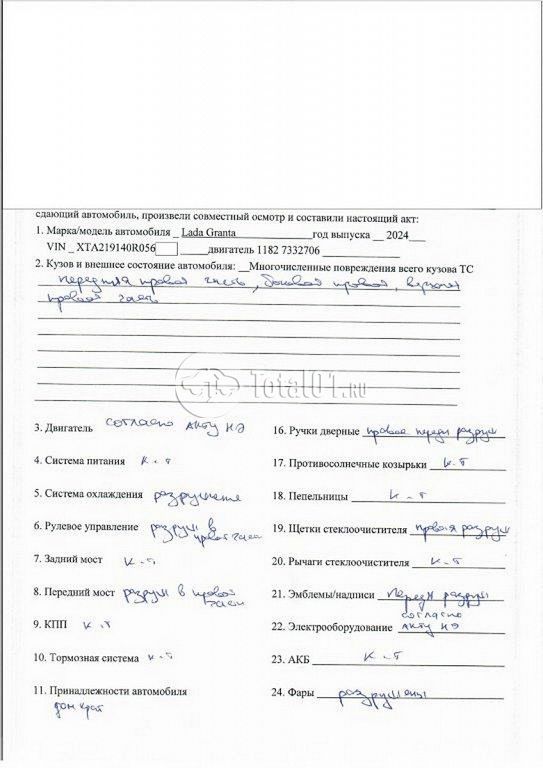 сдающий автомобиль, произвели совместный осмотр и составили настоящий акт:
1. Марка/модель автомобиля _ Lada Granta год выпуска __ 2024___
VIN _ XTA219140R056 _____двигатель 1182 7332706
2. Кузов и внешнее состояние автомобиля: __Многочисленные повреждения всего кузова ТС
передняя правая часть, боковая правая, верхняя
правая часть
Total01.RU
3. Двигатель согласно Акту НЭ
16. Ручки дверные правое передн разруш
4. Система питания к-т
17. Противосолнечные козырьки к-т
5. Система охлаждения разрушена
18. Пепельницы к-т
6. Рулевое управление разруш в
правой части
19. Щетки стеклоочистителя правая разруш
7. Задний мост к-т
20. Рычаги стеклоочистителя к-т
8. Передний мост разруш в правой
части
21. Эмблемы/надписи передн разруш
9. КПП к-т
согласно
22. Электрооборудование Акту НЭ
10. Тормозная система к-т
23. АКБ к-т
11. Принадлежности автомобиля
домкрат
24. Фары разрушены